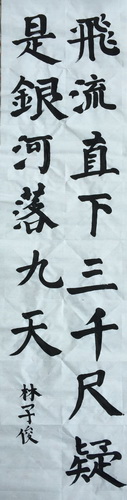 飛流直下三千尺疑
是銀河落九天
林子俊